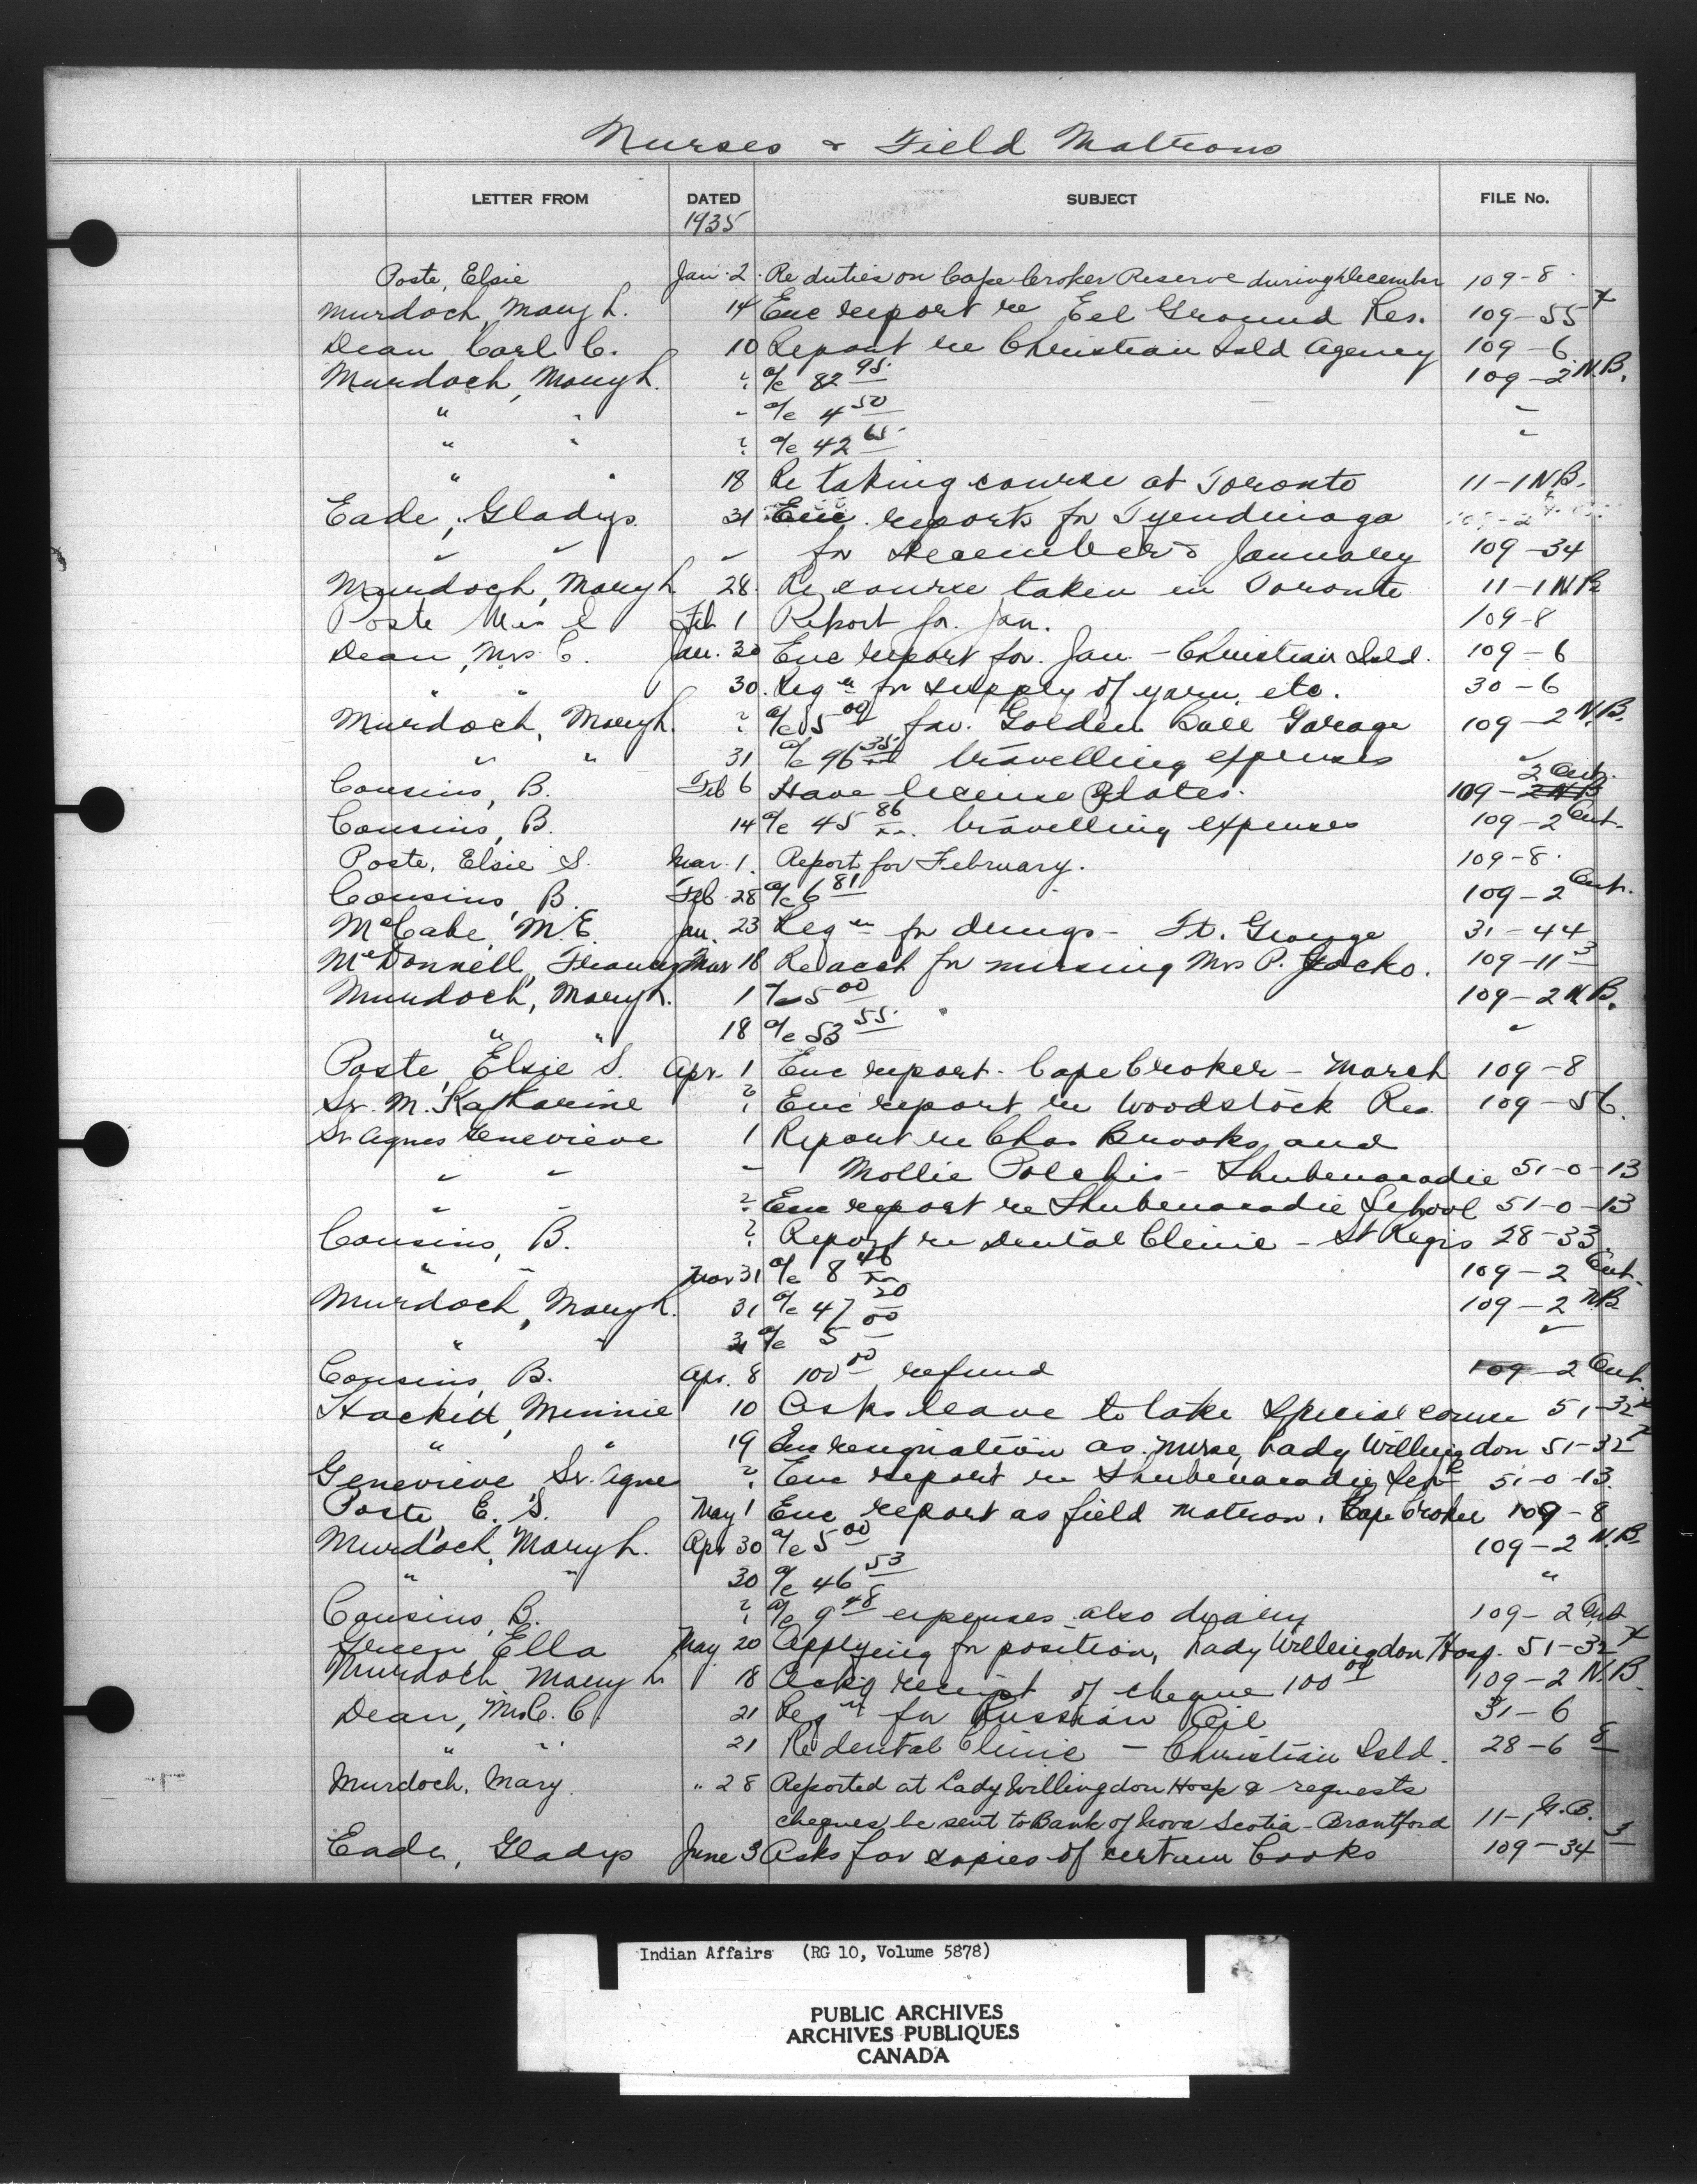 Nurses & Field Matrons
LETTER FROM DATED SUBJECT FILE No.
1935
Poste, Elsie Jan. 2. Re duties on Cape Croker Reserve during December 109-8
Murdoch, Mary L. 14 Enc report re Eel Ground Res. 109-55 x
Dean, Carl C. 10 Report re Christian Isld Agency 109-6
Murdoch, Mary L. ? a/c 82 95 109-2 N.B.
" " " a/c 4 50 "
" " ? a/c 42 65 "
" " 18 Re taking course at Toronto 11-1 N.B.
Eade, Gladys 31 Enc reports for Tyendinaga
" " " for December & January 109-34
Murdoch, Mary L 28. Re course taken in Toronto 11-1 N B
Poste Mrs E Feb 1 Report for Jan. 109-8
Dean, Mrs C. Jan. 30 Enc report for Jan - Christian Isld. 109-6
" " 30. Reqn for supply of yarn, etc. 30-6
Murdoch, Mary L. ? a/c 5 00 fav. Golden Ball Garage 109-2 N.B.
" " 31 a/c 96 35 travelling expenses "
Cousins, B. Feb 6 Have license plates. 109-2 N B 2 Ont.
Cousins, B. 14 a/c 45 86 travelling expenses 109-2 Ont.
Poste, Elsie S. Mar. 1. Report for February. 109-8.
Cousins, B. Feb 28 a/c 6 81 109-2 Ont.
McCabe, M.E. Jan. 23 Reqn for drugs - St. George 31-44
McDonnell, Frances Mar 18 Re acct for nursing Mrs P. Jocko. 109-11 3
Murdoch, Mary L. 1 a/c 5 00 109-2 N.B.
" " 18 a/c 53 55 "
Poste, Elsie S. Apr. 1 Enc report - Cape Croker - March 109-8
Sr. M. Katharine ? Enc report re Woodstock Res. 109-56.
Sr. Agnes Genevieve 1 Report re Chas Brooks and
" " " Mollie Polchis - Shubenacadie 51-0-13
" " ? Enc report re Shubenacadie School 51-0-13
Cousins, B. ? Report re Dental Clinic - St Regis 28-33
" " Mar 31 a/c 8 46 109-2 Ont.
Murdoch, Mary L. 31 a/c 47 20 109-2 N.B.
" " 31 a/c 5 00 "
Cousins, B. Apr. 8 100 00 refund 109-2 Ont.
Hackitt, Minnie 10 Asks leave to take special course 51-32 x
" " 19 Enc resignation as nurse, Lady Willingdon 51-32 x
Genevieve Sr. Agnes ? Enc report re Shubenacadie Schl 51-0-13
Poste, E. S. May 1 Enc report as field matron, Cape Croker 109-8
Murdoch, Mary L. Apr 30 a/c 5 00 109-2 N.B.
" " 30 a/c 46 53 "
Cousins, B. ? a/c 9 48 expenses also diary 109-2 Ont
Green Ella May 20 Applying for position, Lady Willingdon Hosp. 51-32 x
Murdoch, Mary L 18 Ackg receipt of cheque 100 00 109-2 N.B.
Dean, Mrs C. C. 21 Reqn for Russian Oil 31-6
" " 21 Re dental Clinic - Christian Isld. 28-6 8
Murdoch, Mary. " 28 Reported at Lady Willingdon Hosp & requests
cheques be sent to Bank of Nova Scotia - Brantford 11-1 G.B.
Eade, Gladys June 3 Asks for copies of certain books 109-34 3
Indian Affairs (RG 10, Volume 5878)
PUBLIC ARCHIVES
ARCHIVES PUBLIQUES
CANADA